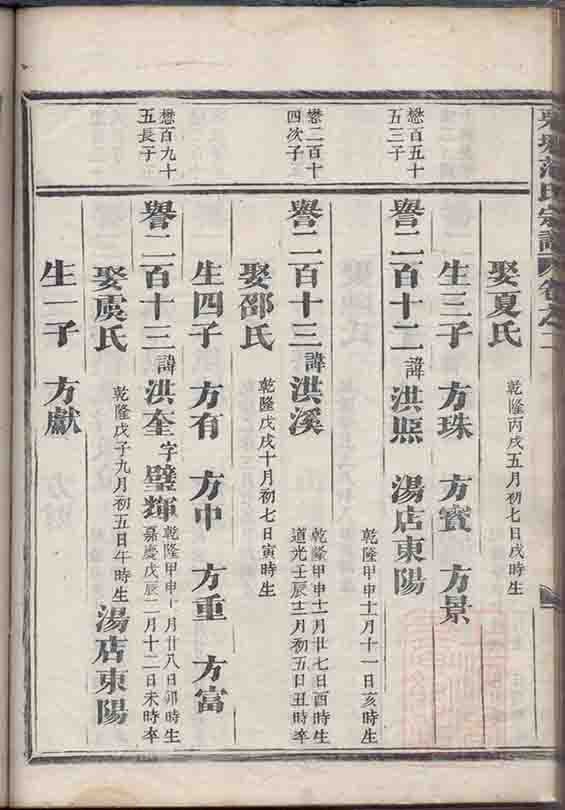 范氏宗譜 卷之二
娶夏氏 乾隆丙戌五月初七日戌時生
生三子 方珠 方寶 方景
懋百五十五三子
譽二百十二諱洪熙 湯店東陽 乾隆甲申十一月十一日亥時生
懋二百十四次子
譽二百十三諱洪溪 乾隆甲申十一月廿七日酉時生
道光壬辰十二月初五日丑時卒
娶邵氏 乾隆戊戌十月初七日寅時生
生四子 方有 方中 方重 方富
懋百九十五長子
譽二百十三諱洪奎字璧輝 乾隆甲申十月廿八日卯時生
嘉慶戊辰二月十二日未時卒
娶虞氏 乾隆戊子九月初五日午時生 湯店東陽
生一子 方獻